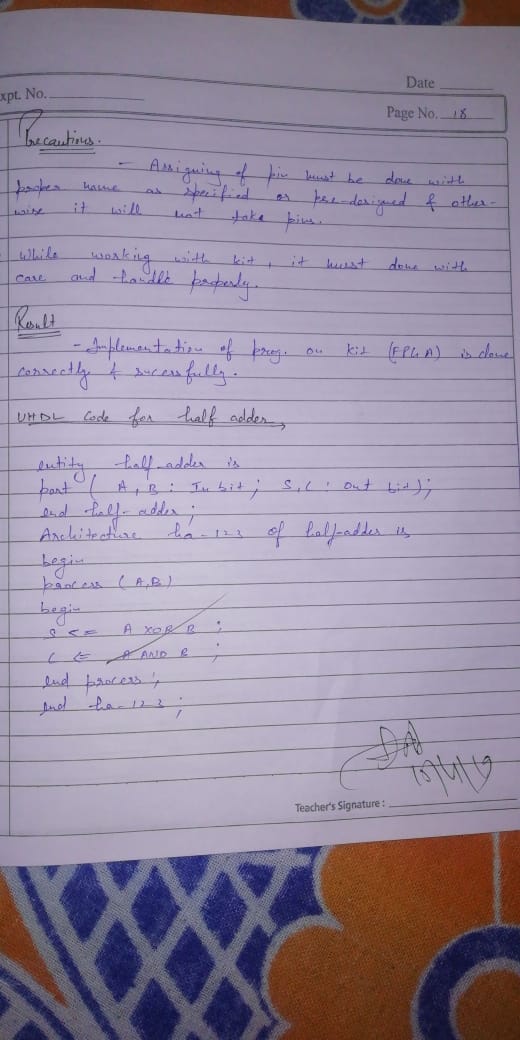 Date
Expt. No.
Page No. 18
Precautions.
- Assigning of pin must be done with
proper name as specified or pre-designed & other-
wise it will not take pins.
While working with kit, it must done with
care and handle properly.
Result
- Implementation of prog. on kit (FPGA) is done
correctly & sucessfully.
VHDL Code for half adder
entity half-adder is
port ( A, B : In bit ; S, C : out bit);
end half-adder ;
Architecture ha-123 of half-adder is
begin
process (A,B)
begin
S <= A XOR B ;
C <= A AND B ;
end process ;
end ha-123 ;
Teacher's Signature :